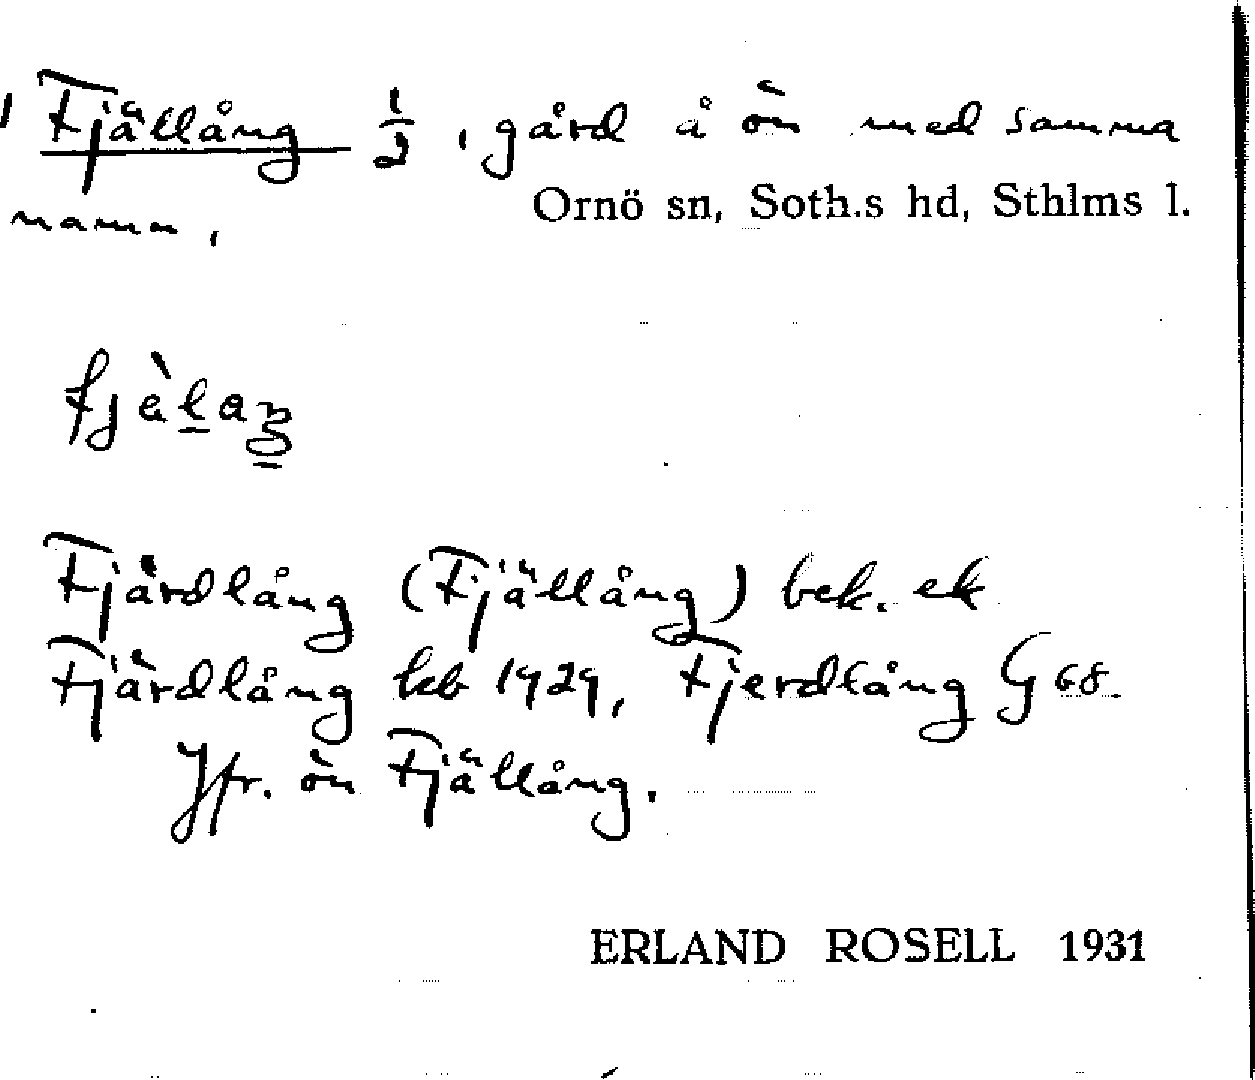 Fjällång ½, gård å ön med samma
namn,
Ornö sn, Soth.s hd, Sthlms l.
Fjärdlång (Fjällång) bek. ek
Fjärdlång kb 1929, Fjerdlång G 68.
Jfr. ön Fjällång.
ERLAND ROSELL 1931